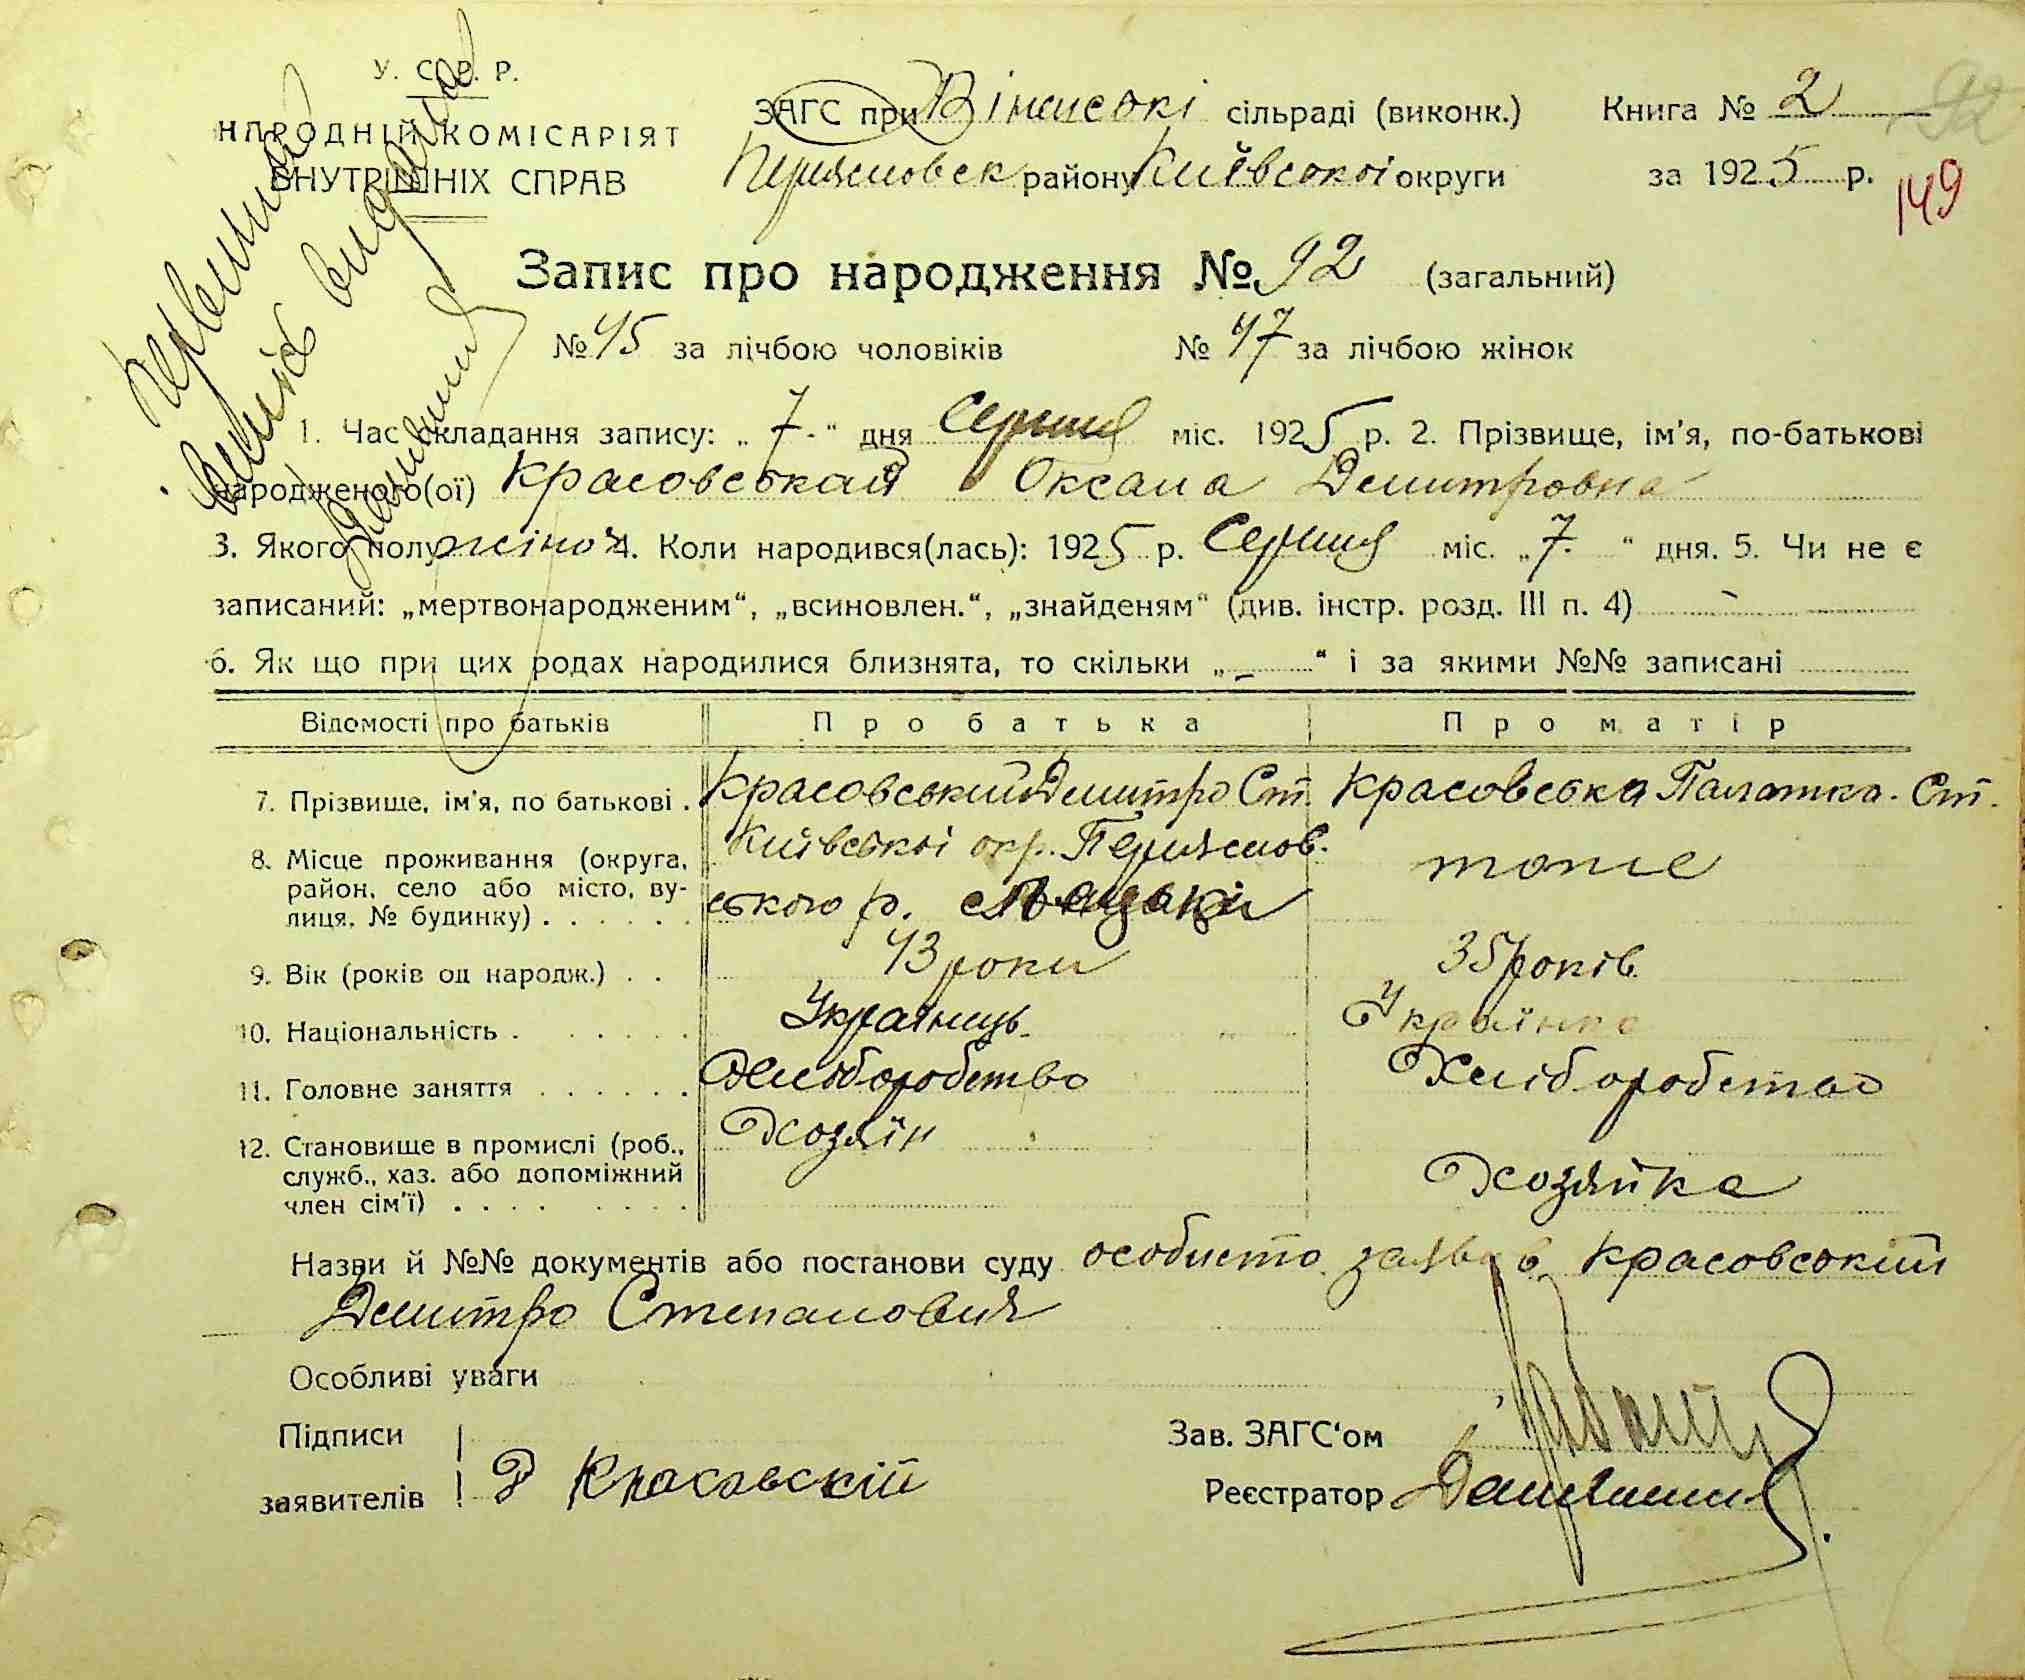 У. С. Р. Р.
НАРОДНІЙ КОМІСАРІЯТ
ВНУТРІШНІХ СПРАВ
ЗАГС при сільраді (виконк.) Книга № 2 92
району Київської округи за 1925 р. 149
Первишний
витяг виданий
Запис про народження № 92 (загальний)
№ 45 за лічбою чоловіків № 47 за лічбою жінок
1. Час складання запису: „ 7 - “ дня Серпня міс. 1925 р. 2. Прізвище, ім'я, по-батькові
народженого(ої) Красовськая Оксана Демитровна
3. Якого полу жіноч 4. Коли народився(лась): 1925 р. Серпня міс. „ 7. “ дня. 5. Чи не є
записаний: „мертвонародженим“, „всиновлен.“, „знайденям“ (див. інстр. розд. III п. 4) -
6. Як що при цих родах народилися близнята, то скільки „ - “ і за якими №№ записані
Відомості про батьків Про батька Про матір
7. Прізвище, ім'я, по батькові . Красовський Демитро Ст. Красовська Палажка. Ст.
8. Місце проживання (округа, район, село або місто, вулиця, № будинку) . . . . . . Київської окр. Переяслов. ського р. тоже
9. Вік (років од народж.) . . 43 роки 35 років.
10. Національність . . . . . . Українець. Українка
11. Головне заняття . . . . . . Хліборобство Хліборобство
12. Становище в промислі (роб., служб., хаз. або допоміжний член сім'ї) . . . . . . . . Хозяїн Хозяйка
Назви й №№ документів або постанови суду особисто заявив Красовський
Демитро Степанович
Особливі уваги
Підписи
заявителів Д Красовскій
Зав. ЗАГС'ом
Реєстратор